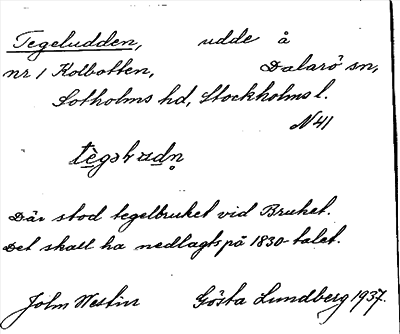 Tegeludden, udde å
nr 1 Kolbotten, Dalarö sn,
Sotholms hd, Stockholms l.
N41
Där stod tegelbruket vid Bruket.
Det skall ha nedlagts på 1830-talet.
John Westin Gösta Lundberg 1937.